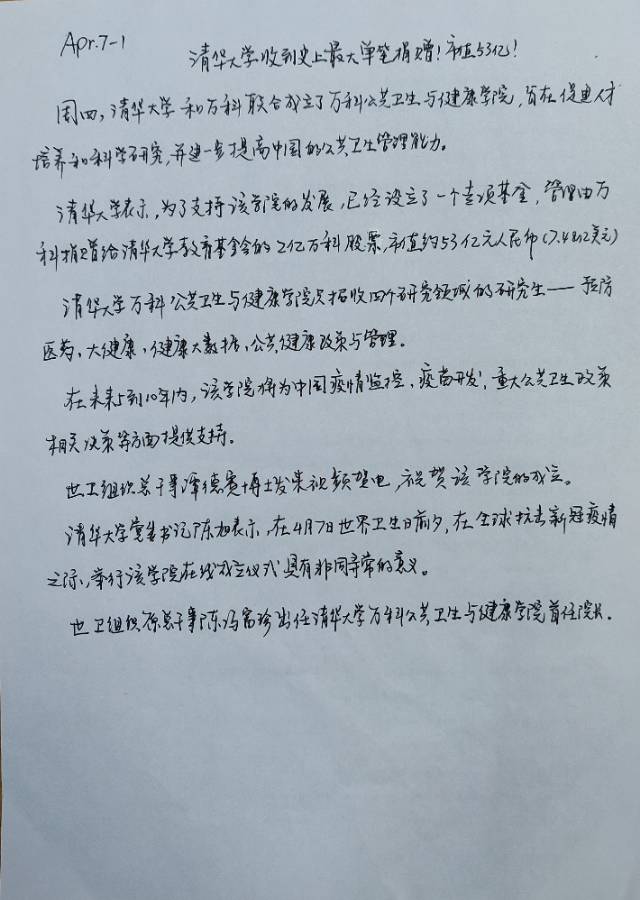 Apr.7-1
清华大学收到史上最大单笔捐赠！市值53亿！
周四，清华大学和万科联合成立了万科公共卫生与健康学院，旨在促进人才
培养和科学研究，并进一步提高中国的公共卫生管理能力。
清华大学表示，为了支持该学院的发展，已经设立了一个专项基金，管理由万
科捐赠给清华大学教育基金会的2亿万科股票，市值约53亿元人民币(7.48亿美元)
清华大学万科公共卫生与健康学院只招收四个研究领域的研究生——预防
医药、大健康、健康大数据、公共健康政策与管理。
在未来5到10年内，该学院将为中国疫情监控、疫苗开发、重大公共卫生政策
相关决策等方面提供支持。
世卫组织总干事谭德赛博士发来视频贺电，祝贺该学院的成立。
清华大学党委书记陈旭表示，在4月7日世界卫生日前夕，在全球抗击新冠疫情
之际，举行该学院在线成立仪式具有非同寻常的意义。
世卫组织原总干事陈冯富珍出任清华大学万科公共卫生与健康学院首任院长。